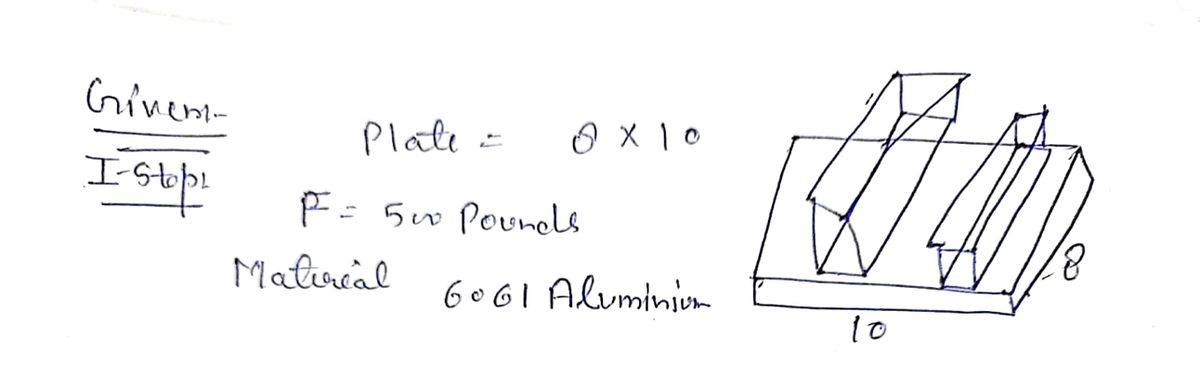 Given:-
I-Step:
Plate = 8 X 10
F = 500 Pounds
Material 6061 Aluminium
8
10